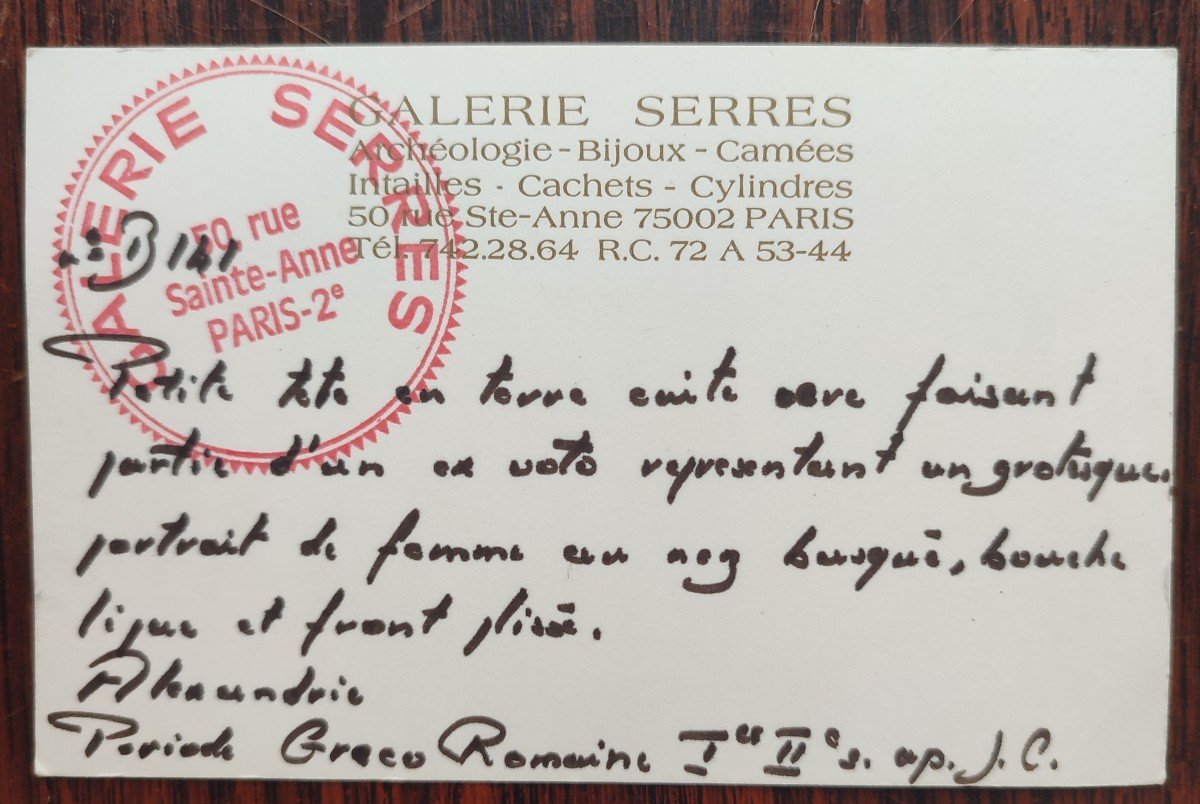 GALERIE SERRES
Archéologie - Bijoux - Camées
Intailles - Cachets - Cylindres
50 rue Ste-Anne 75002 PARIS
Tél. 742.28.64 R.C. 72 A 53-44
GALERIE SERRES
50, rue
Sainte-Anne
PARIS-2e
B 141
Petite tête en terre cuite ocre faisant
partie d'un ex voto representant un grotesque.
portrait de femme au nez busqué, bouche
et front plissé.
Alexandrie
Periode Greco Romaine Ier IIe s. ap. J.C.